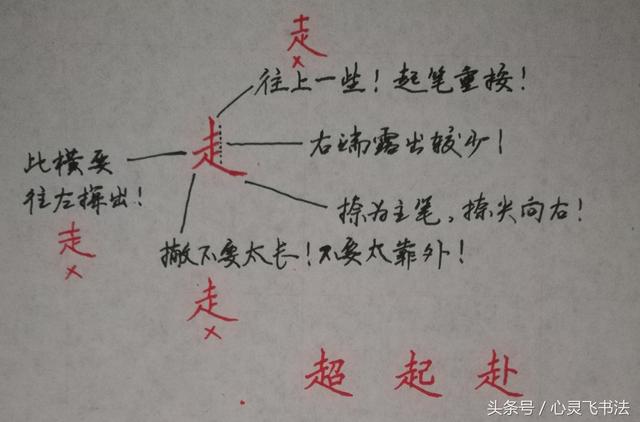 走
×
往上一些！起笔重按！
走
右端露出较少！
此横要
往左探出！
走
×
捺为主笔，捺尖向右！
撇不要太长！不要太靠外！
走
×
超 起 赴
头条号／心灵飞书法